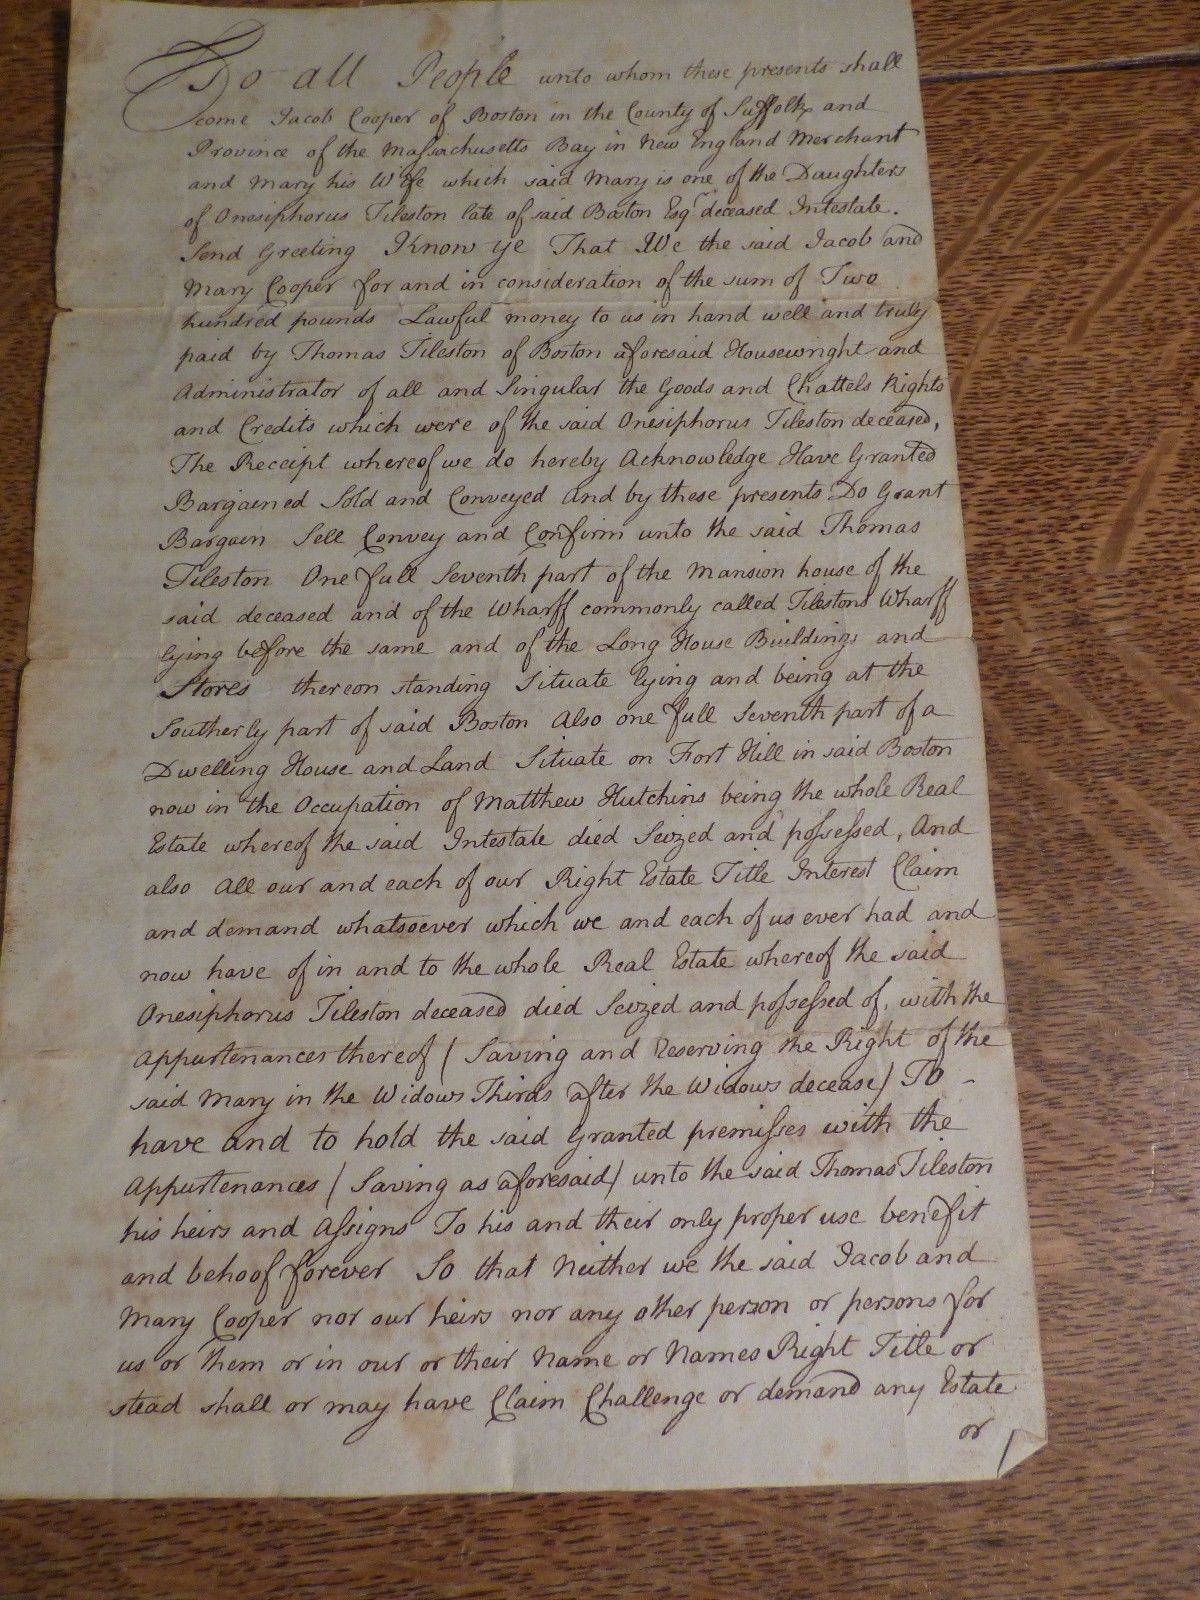 To all People unto whom these presents shall
come Jacob Cooper of Boston in the County of Suffolk and
Province of the Massachusetts Bay in New England Merchant
and Mary his Wife which said Mary is one of the Daughters
of Onesiphorus Tileston late of said Boston Esqr deceased Intestate.
Send Greeting Know ye That We the said Jacob and
Mary Cooper for and in consideration of the sum of Two
hundred pounds Lawful money to us in hand well and truly
paid by Thomas Tileston of Boston aforesaid Housewright and
Administrator of all and Singular the Goods and Chattels Rights
and Credits which were of the said Onesiphorus Tileston deceased,
The Receipt whereof we do hereby Acknowledge Have Granted
Bargained Sold and Conveyed and by these presents Do Grant
Bargain Sell Convey and Confirm unto the said Thomas
Tileston One full Seventh part of the Mansion house of the
said deceased and of the Wharff commonly called Tilestons Wharff
lying before the same and of the Long House Buildings and
Stores thereon standing Situate lying and being at the
Southerly part of said Boston Also one full Seventh part of a
Dwelling House and Land Situate on Fort Hill in said Boston
now in the Occupation of Matthew Hutchins being the whole Real
Estate whereof the said Intestate died Seized and possessed, And
also All our and each of our Right Estate Title Interest Claim
and demand whatsoever which we and each of us ever had and
now have of in and to the whole Real Estate whereof the said
Onesiphorus Tileston deceased died Seized and possessed of, with the
Appurtenances thereof (Saving and Reserving the Right of the
said Mary in the Widows Thirds after the Widows decease) To -
have and to hold the said Granted premisses with the
Appurtenances (Saving as aforesaid) unto the said Thomas Tileston
his heirs and Assigns To his and their only proper use benefit
and behoof forever So that Neither we the said Jacob and
Mary Cooper nor our heirs nor any other person or persons for
us or them or in our or their Name or Names Right Title or
stead shall or may have Claim Challenge or demand any Estate
or